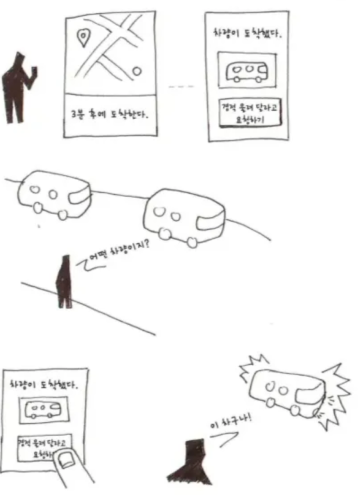 차량이 도착했다.
3분 후에 도착한다.
경적 울려 달라고
요청하기
어떤 차량이지?
차량이 도착했다.
경적 울려 달라고
요청하기
이 차구나!